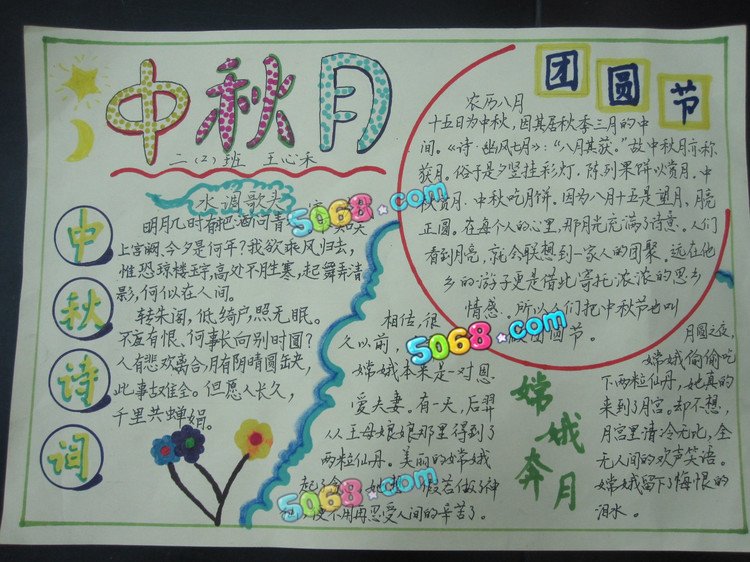 中秋月
二(2)班 王心禾
中
秋
诗
词
水调歌头
明月几时有把酒问青
上宫阙、今夕是何年?我欲乘风归去,
惟恐琼楼玉宇,高处不胜寒,起舞弄清
影,何似在人间。
转朱阁,低绮户,照无眠。
不应有恨、何事长向别时圆?
人有悲欢离合,月有阴晴圆缺,
此事古难全。但愿人长久,
千里共蝉娟。
团圆节
农历八月
十五日为中秋,因其居秋季三月的中
间。《诗·豳风七月》:“八月其获。”故中秋月亦称
获月。俗于是夕竖挂彩灯,陈列果饼以赏月,中
秋赏月、中秋吃月饼。因为八月十五是望月,月亮
正圆。在每个人的心里,那月光充满了诗意。人们
看到月亮,就会联想到一家人的团聚。远在他
乡的游子更是借此寄托浓浓的思乡
情感。所以人们把中秋节也叫
团圆节。
嫦娥奔月
相传,很
久以前,
嫦娥本来是一对恩
爱夫妻。有一天,后羿
从王母娘娘那里得到了
两粒仙丹。美丽的嫦娥
起了
假若做了神
仙,便不用再忍受人间的辛苦了。
月圆之夜,
嫦娥偷偷吃
下两粒仙丹,她真的
来到了月宫。却不想,
月宫里清冷无比,全
无人间的欢声笑语。
嫦娥留下了悔恨的
泪水。
5068.com
5068.com
5068.com
5068.com